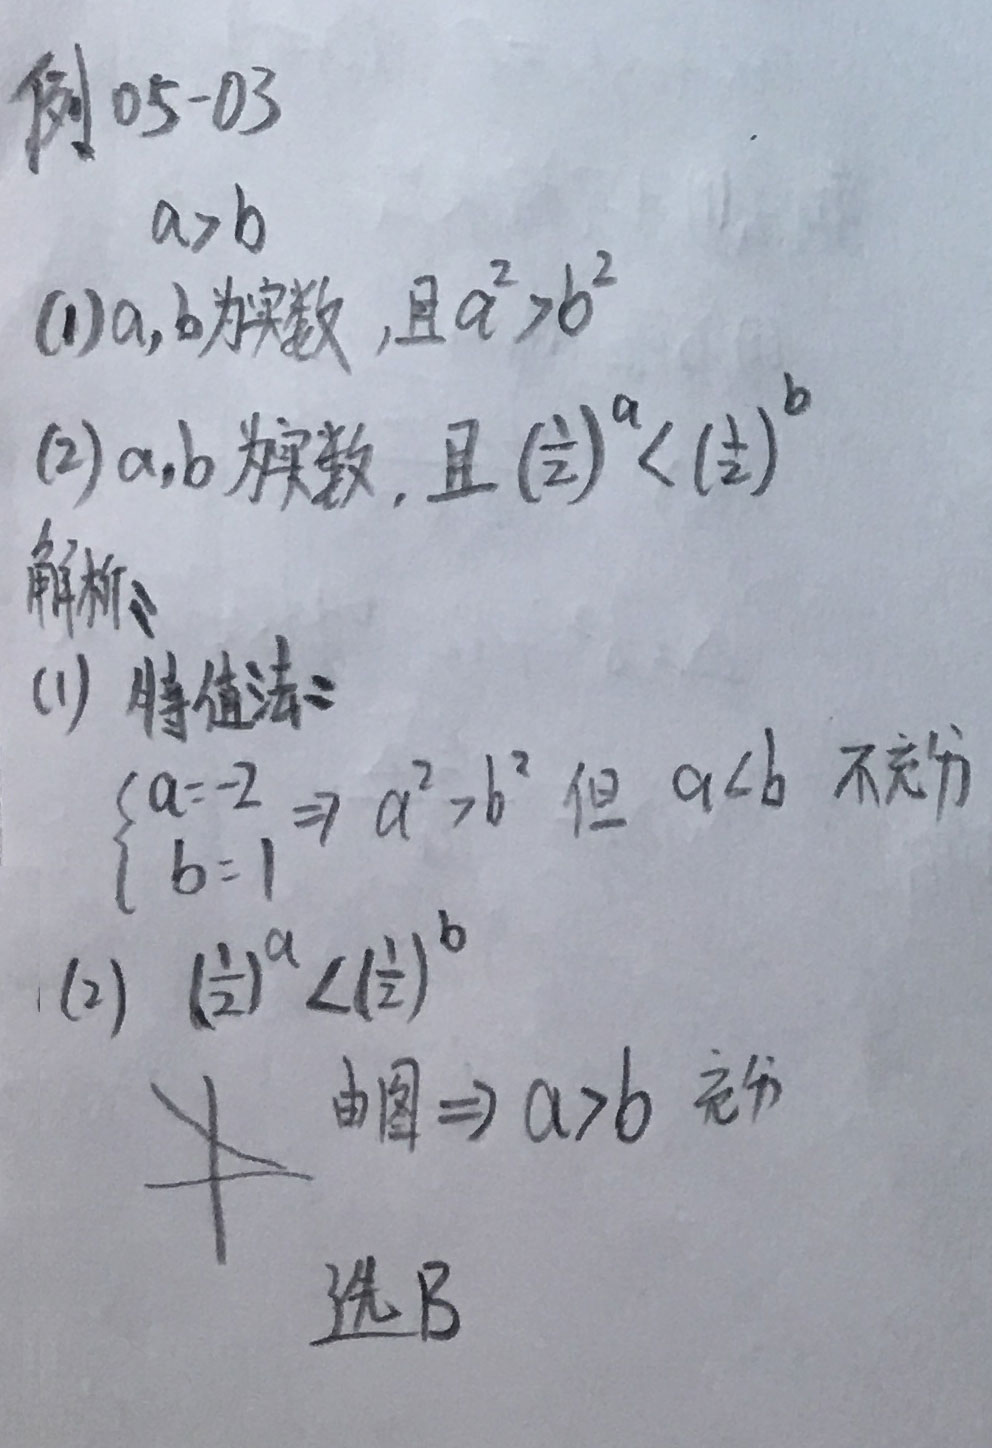 例05-03
a>b
(1)a,b为实数,且a²>b²
(2)a,b为实数,且(1/2)^a<(1/2)^b
解析:
(1) 特值法:
{a=-2 b=1 ⇒ a²>b² 但 a<b 不充分
(2) (1/2)^a<(1/2)^b
由图⇒a>b 充分
选B